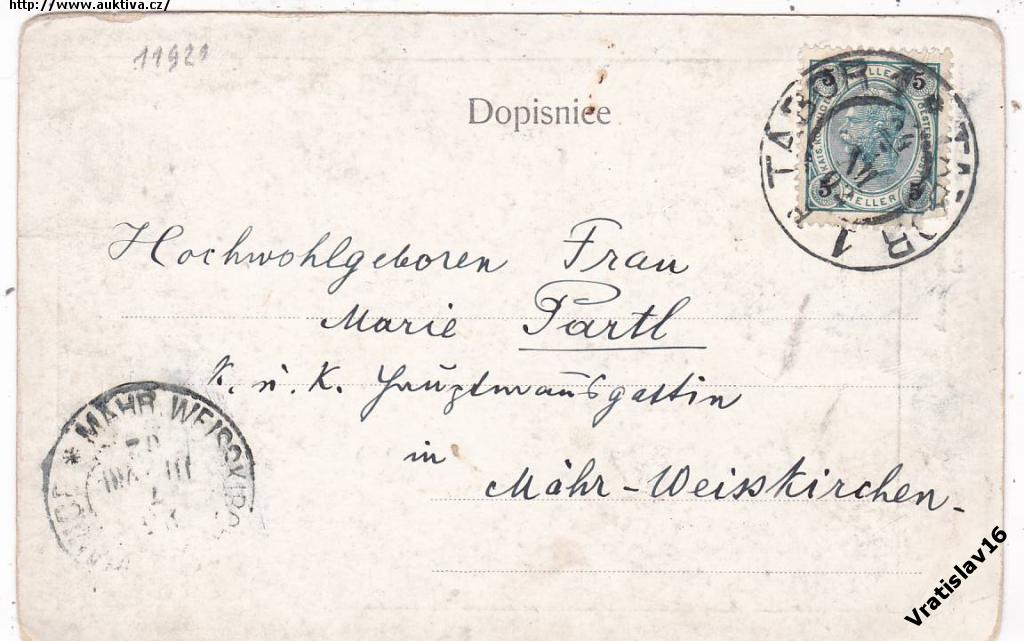 http://www.auktiva.cz/
11921
Dopisnice
5 HELLER 5
5 HELLER 5
TABOR 1
Hochwohlgeboren Frau
Marie Partl
K. u. K. Hauptmannsgattin
in
Mähr-Weisskirchen.
* MÄHR. WEISSKIRCH
Vratislav16